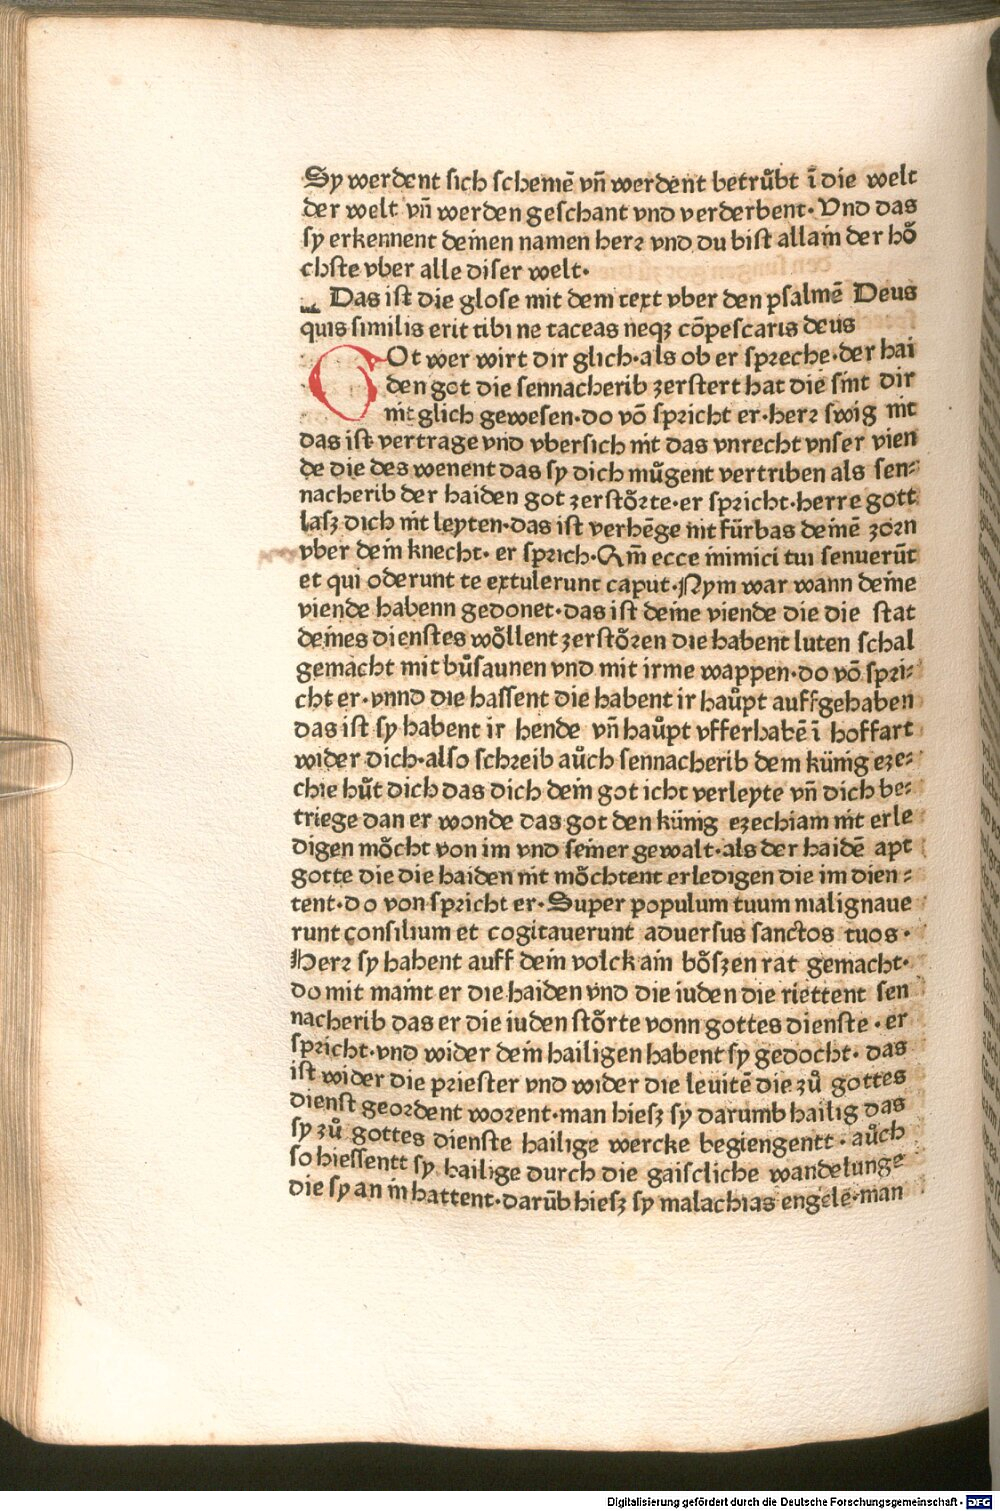 Sy werdent sich schemē vn̄ werdent betrůbt ī die welt
der welt vn̄ werden geschant vnd verderbent· Vnd das
sy erkennent deinen namen herꝛ vnd du bist allain der hŏ
chste vber alle diser welt·
Das ist die glose mit dem text vber den psalmē Deus
quis similis erit tibi ne taceas neqꝫ cōpescaris deus
GOt wer wirt dir glich·als ob er spreche·der hai
den got die sennacherib zerstert hat die sint dir
nit glich gewesen·do vō spricht er·herꝛ swig nit
das ist vertrage vnd vbersich nit das vnrecht vnser vien
de die des wenent das sy dich můgent vertriben als sen⸗
nacherib der haiden got zerstŏrte·er spricht·herre gott
lasz dich nit leyten·das ist verhēge nit fürbas deinē zorn
vber dein knecht· er sprich·Qm̄ ecce inimici tui senuerūt
et qui oderunt te extulerunt caput·Nym war wann deine
viende habenn gedonet·das ist deine viende die die stat
deines dienstes wŏllent zerstŏren die habent luten schal
gemacht mit bůsaunen vnd mit irme wappen·do vō spri⸗
cht er·vnnd die hassent die habent ir haůpt auffgehaben
das ist sy habent ir hende vn̄ haůpt vfferhabē ī hoffart
wider dich·also schreib aůch sennacherib dem künig eze⸗
chie hůt dich das dich dein got icht verleyte vn̄ dich be⸗
triege dan er wonde das got den künig ezechiam nit erle
digen mŏcht von im vnd seiner gewalt·als der haidē apt
gotte die die haiden nit mŏchtent erledigen die im dien⸗
tent·do von spricht er·Super populum tuum malignaue
runt consilium et cogitauerunt aduersus sanctos tuos·
Herꝛ sy habent auff dein volck ain bŏszen rat gemacht·
do mit maint er die haiden vnd die iuden die riettent sen
nacherib das er die iuden stŏrte vonn gottes dienste·er
spricht·vnd wider dein hailigen habent sy gedocht· das
ist wider die priester vnd wider die leuitē die zů gottes
dienst geordent worent·man hiesz sy darumb hailig das
sy zů gottes dienste hailige wercke begiengentt·aůch
so hiessentt sy hailige durch die gaiscliche wandelunge
die sy an in hattent·darūb hiesz sy malachias engele·man
Digitalisierung gefördert durch die Deutsche Forschungsgemeinschaft - DFG